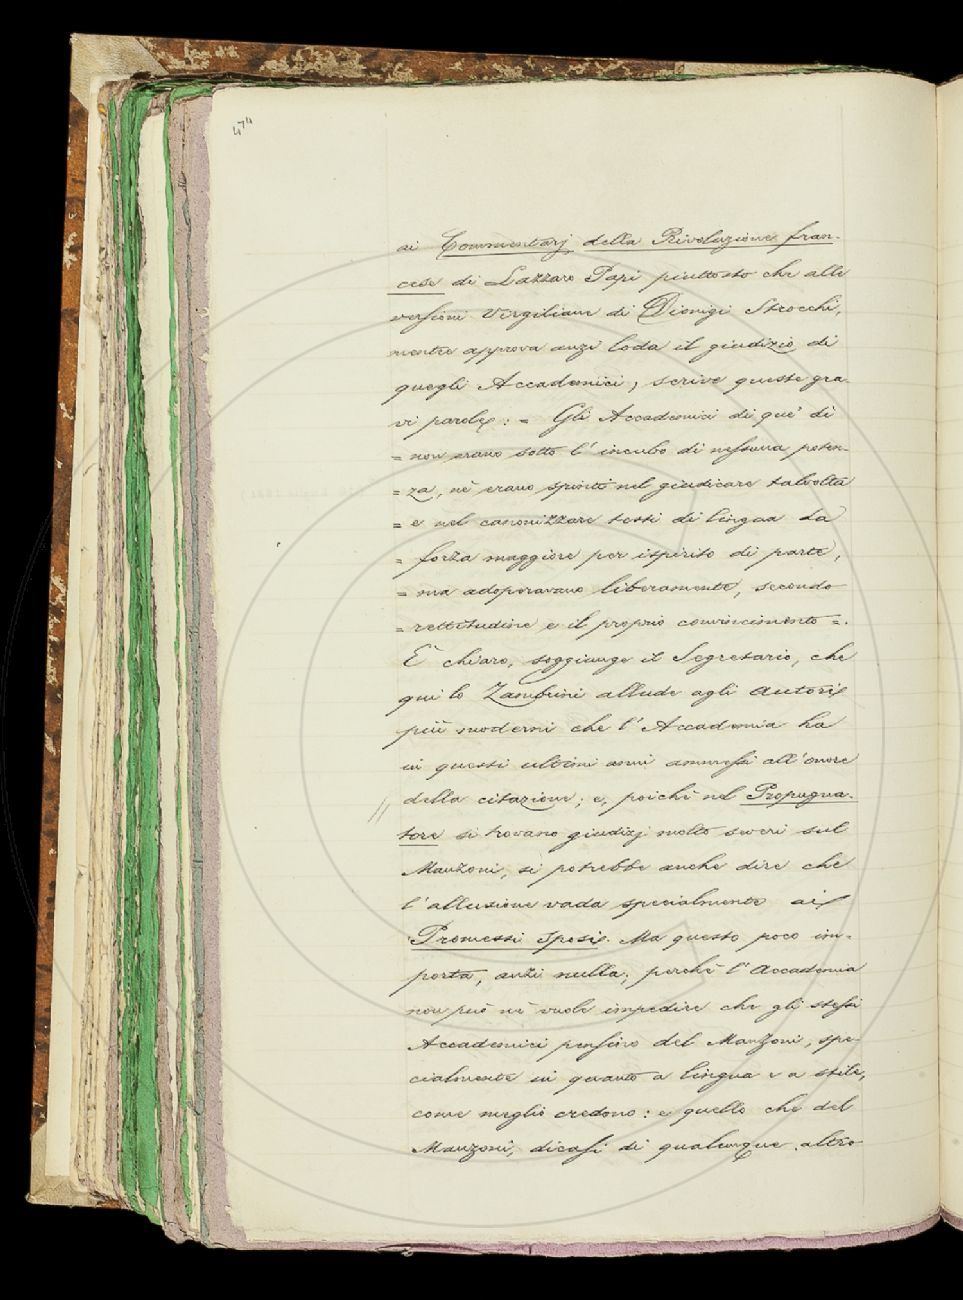 474
ai Commentarj della Rivoluzione fran-
cese di Lazzaro Papi piuttosto che alle
versioni Virgiliane di Dionigi Strocchi,
mentre approva anzi loda il giudizio di
quegli Accademici, scrive queste gra-
vi parole: = Gli Accademici di que' dì
= non erano sotto l'incubo di nessuna poten-
= za, nè erano spinti nel giudicare talvolta
= e nel canonizzare testi di lingua da
= forza maggiore per ispirito di parte,
= ma adoperavano liberamente, secondo
= rettitudine e il proprio convincimento =.
È chiaro, soggiunge il Segretario, che
qui lo Zambrini allude agli autori
più moderni che l'Accademia ha
in questi ultimi anni ammessi all'onore
della citazione; e, poichè nel Propugna-
tore si trovano giudizj molto severi sul
Manzoni, si potrebbe anche dire che
l'allusione vada specialmente ai
Promessi Sposi. Ma questo poco im-
porta, anzi nulla; perchè l'Accademia
non può nè vuole impedire che gli stessi
Accademici pensino del Manzoni, spe-
cialmente in quanto a lingua e a stile,
come meglio credono: e quello che del
Manzoni, dicasi di qualunque altro